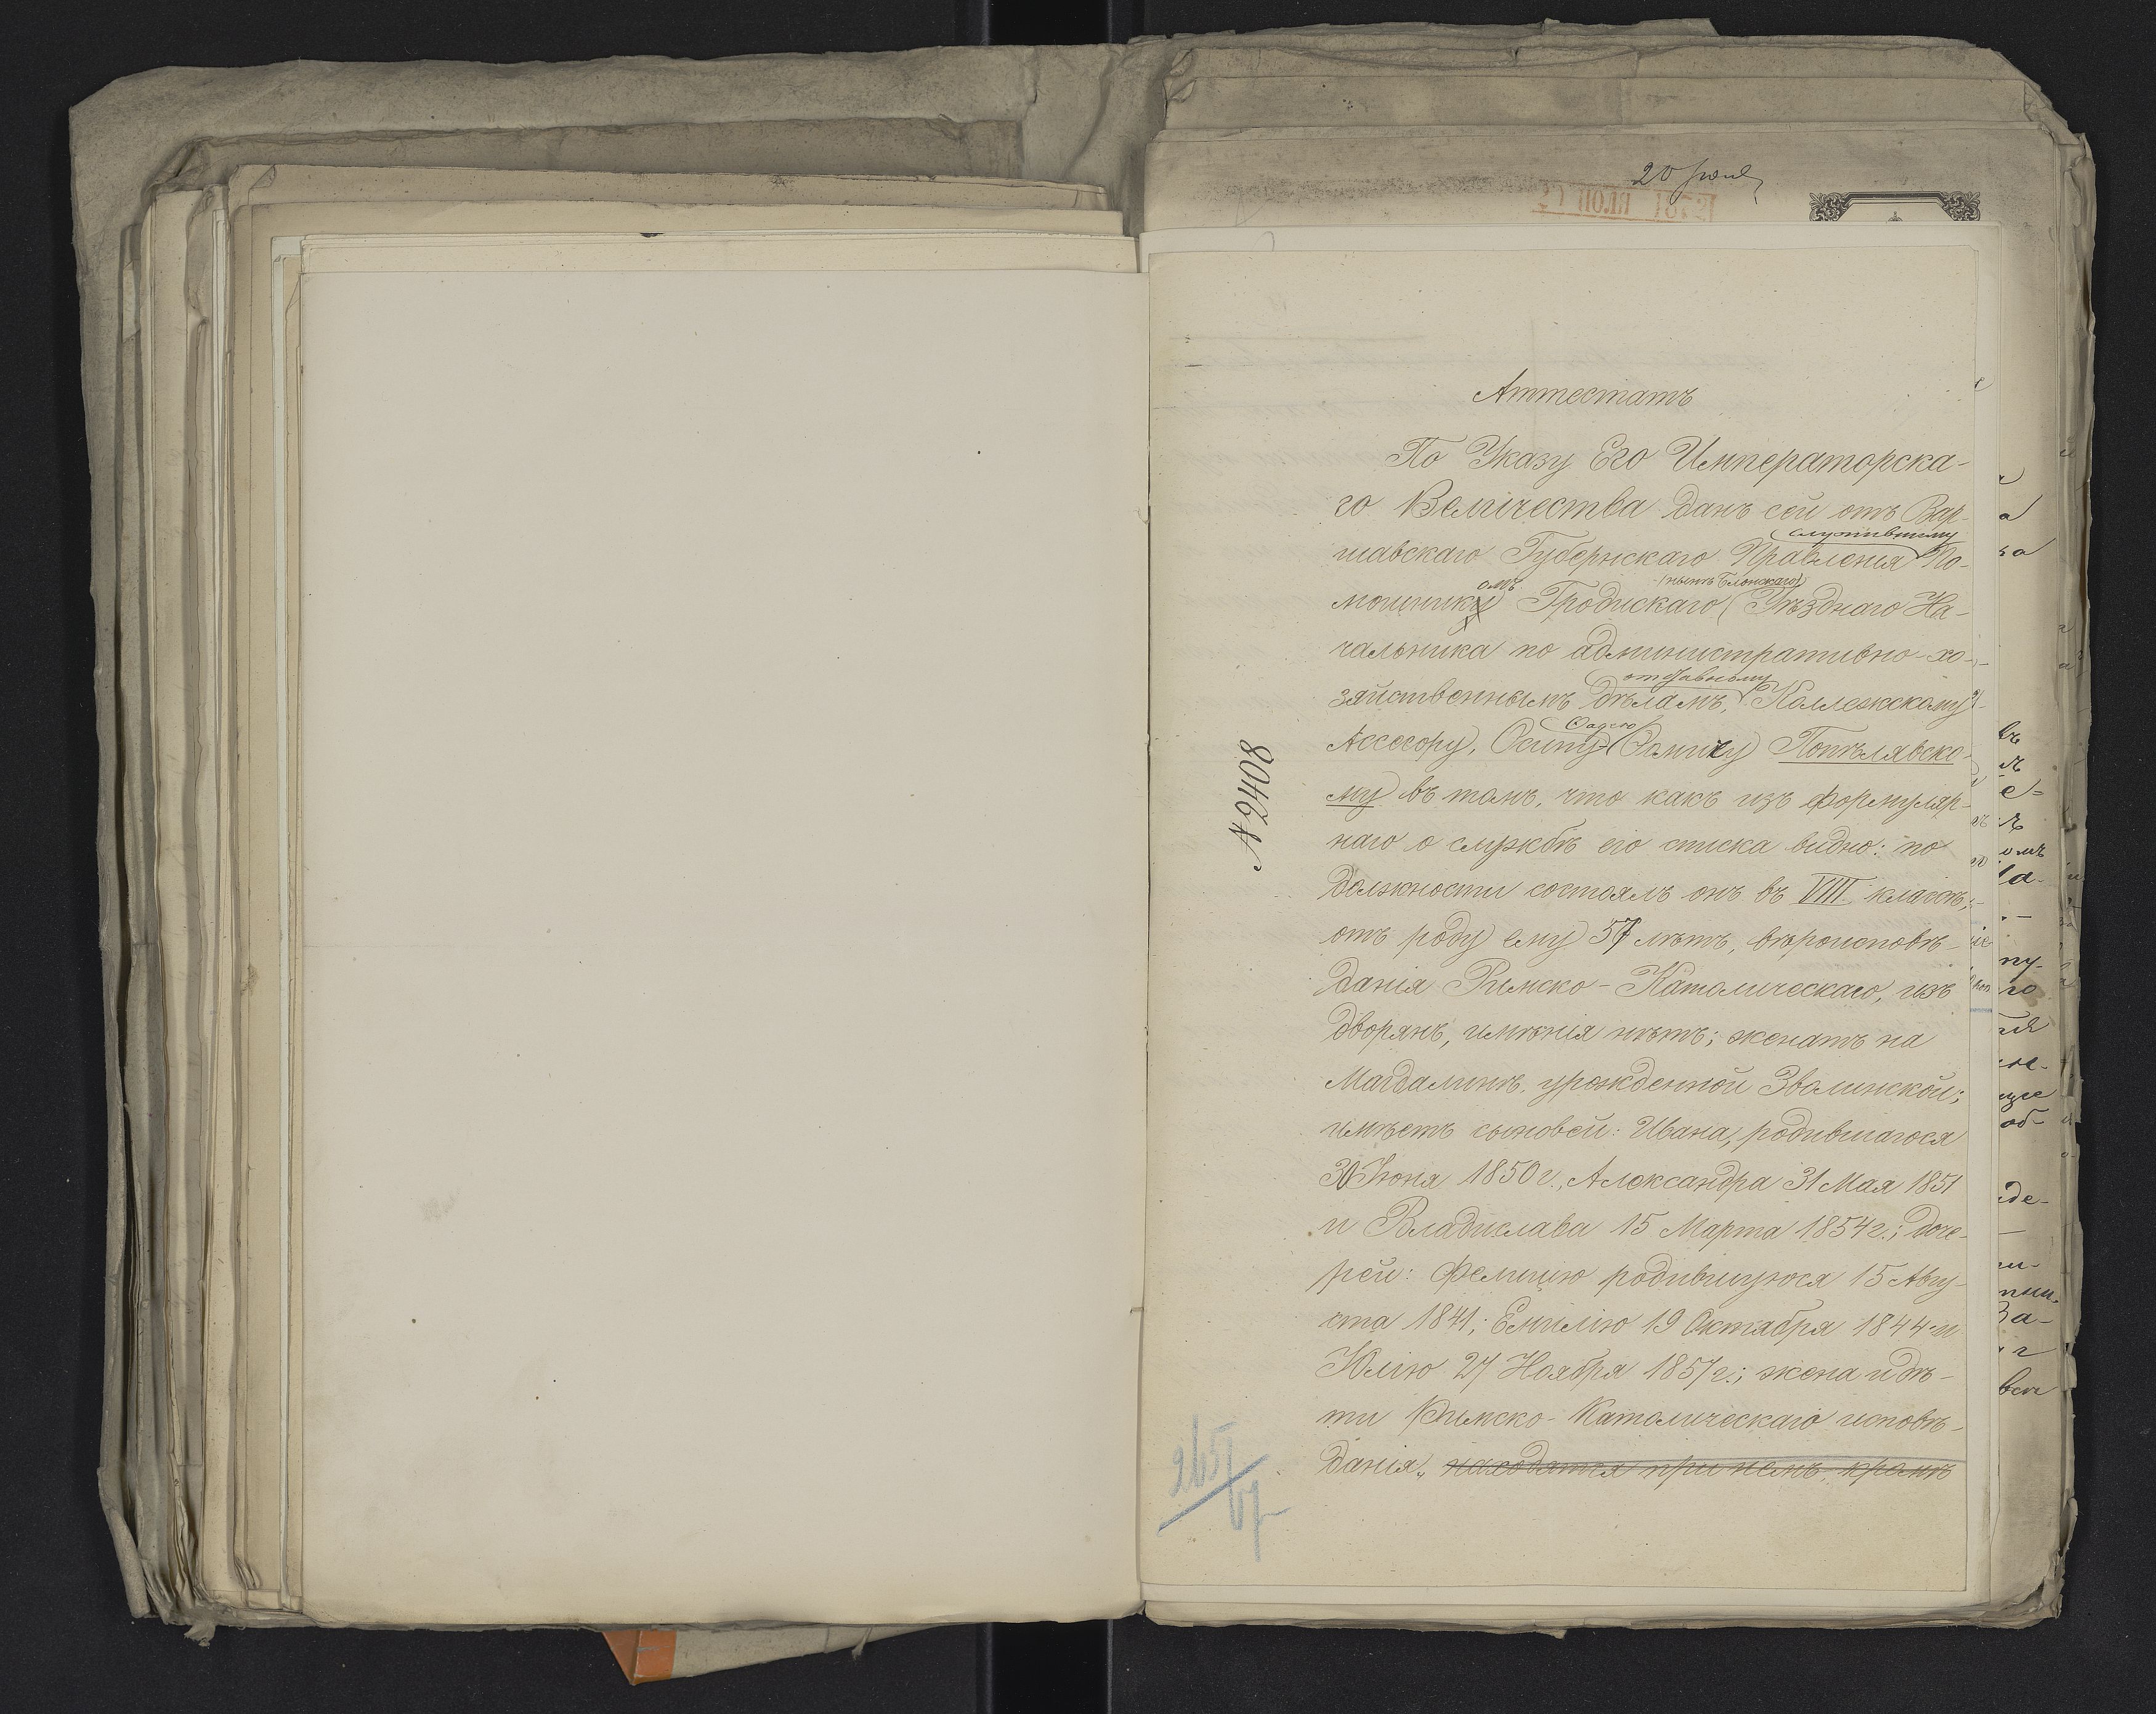 20 Іюня
Аттестатъ
По Указу Его Императорска-
го Величества данъ сей отъ Вар-
служившему
шавскаго Губернскаго Правленія По-
омъ (нынѣ Блонскаго)
мощник Гродискаго Уѣзднаго На-
чальника по административно-хо-
отставному
зяйственнымъ дѣламъ, Коллежскому
Фадею
Ассесору, Осипу Попѣлявско-
му въ томъ, что какъ изъ формуляр-
наго о службѣ его списка видно: по
должности состоялъ онъ въ VIII классѣ,
отъ роду ему 57 лѣтъ, вѣроисповѣ-
данія Римско-Католическаго, изъ
дворянъ, имѣнія нѣтъ; женатъ на
Магдалинѣ, урожденной Зволинской;
имѣетъ сыновей: Ивана, родившагося
30 Июня 1850 г., Александра 31 Мая 1851
и Владислава 15 Марта 1854 г.; доче-
рей: Фелицію родившуюся 15 Авгу-
ста 1841; Емилію 19 Октября 1844 и
Юлію 27 Ноября 1857 г.; жена и дѣ-
ти Римско-Католическаго исповѣ-
данія, находятся при немъ, кромѣ
№ 2408
265/67